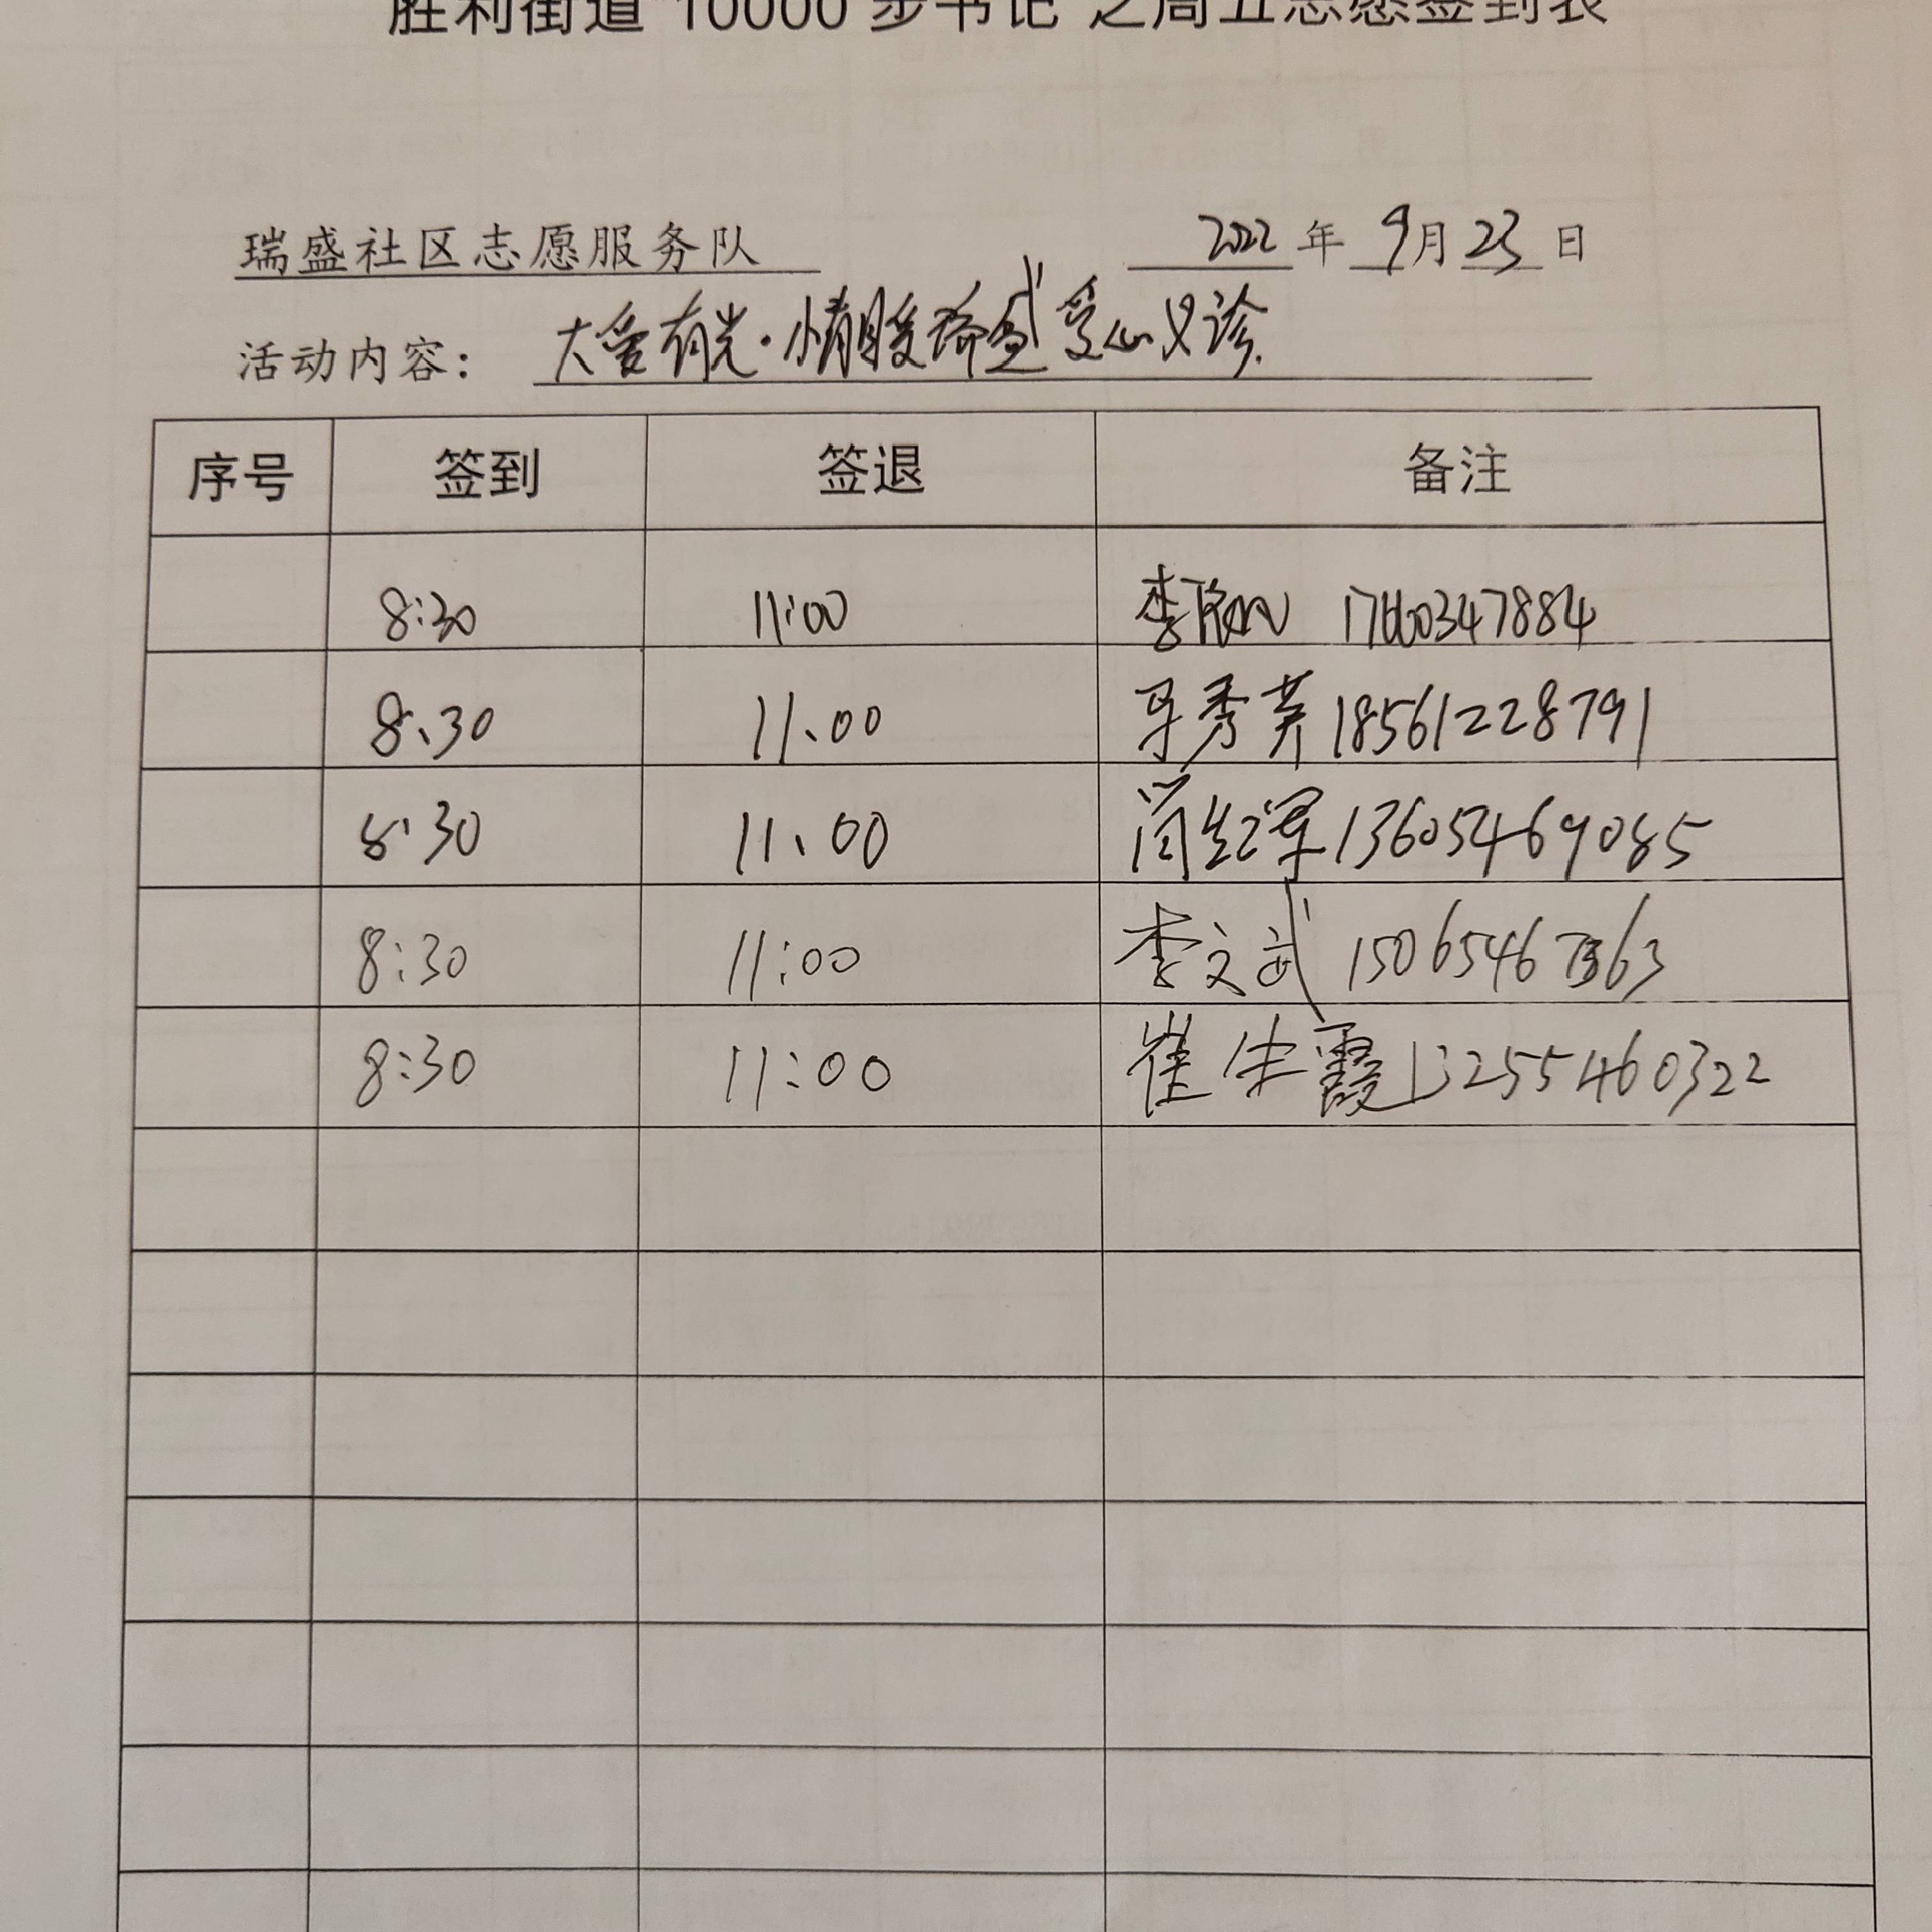 胜利街道“10000步书记”之周五志愿签到表
瑞盛社区志愿服务队 2022年 9月 23日
活动内容： 大爱有光·情暖瑞盛 爱心义诊
序号 签到 签退 备注
8:30 11:00 李 17660347884
8:30 11:00 马秀英 18561228791
8:30 11:00 军 13605469085
8:30 11:00 李文武
8:30 11:00 崔 霞 13255460322